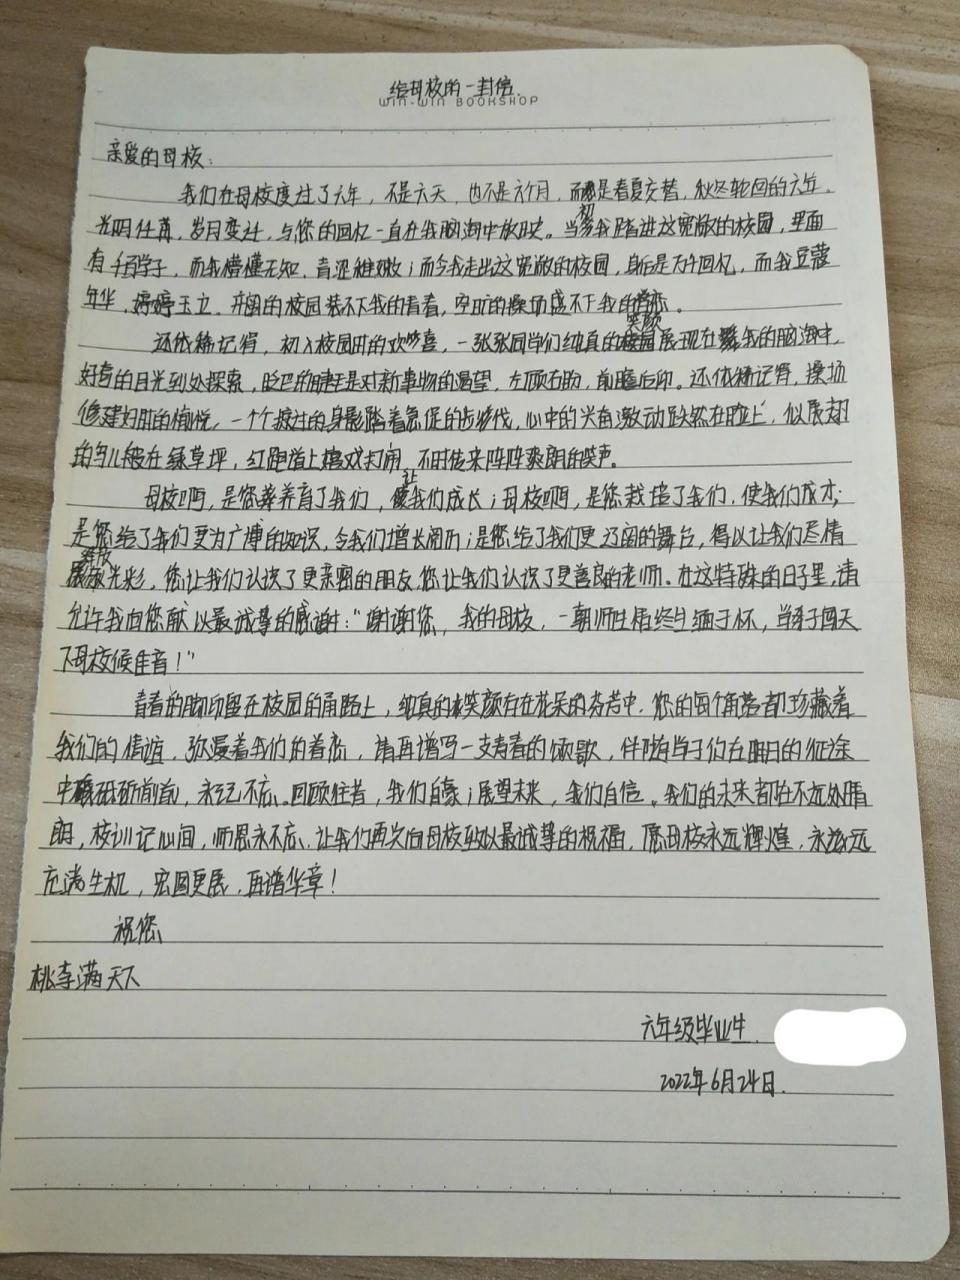 给母校的一封信.
WIN-WIN BOOKSHOP
亲爱的母校:
我们在母校度过了六年,不是六天,也不是六个月,而是春夏交替,秋冬轮回的六年。
光阴荏苒,岁月变迁,与您的回忆一直在我脑海中放映。当初我踏进这宽敞的校园,里面
有千百学子,而我懵懂无知,青涩稚嫩;而今我走出这宽敞的校园,身后是万千回忆,而我豆蔻
年华,婷婷玉立。开阔的校园装不下我的青春,空旷的操场盛不下我的眷恋。
还依稀记得,初入校园时的欢喜,一张张同学们纯真的笑颜展现在我的脑海中,
好奇的目光到处探索,眨巴的眼睛是对新事物的渴望,左顾右盼,前瞻后仰。还依稀记得,操场
修建好时的愉悦,一个个掠过的身影踏着急促的步伐,心中的兴奋激动跃然在脸上,似展翅
的鸟儿般在绿草坪,红跑道上嬉戏打闹,不时传来阵阵爽朗的笑声。
母校啊,是您养育了我们,让我们成长;母校啊,是您栽培了我们,使我们成才;
是您给了我们更为广博的知识,令我们增长阅历;是您给了我们更辽阔的舞台,得以让我们尽情
绽放光彩,您让我们认识了更亲密的朋友,您让我们认识了更善良的老师。在这特殊的日子里,请
允许我向您献以最诚挚的感谢:“谢谢您,我的母校,一朝师生情终生缅于怀,学子闯天
下母校候佳音!”
青春的脚印留在校园的甬路上,纯真的笑颜存在花朵的芬芳中,您的每个角落都珍藏着
我们的情谊,弥漫着我们的眷恋,请再谱写一支青春的颂歌,伴随学子们在明日的征途
中砥砺前行,永记不忘。回顾往昔,我们自豪;展望未来,我们自信。我们的未来都在不远处晴
朗,校训记心间,师恩永不忘,让我们再次向母校致以最诚挚的祝福,愿母校永远辉煌,永远
充满生机,宏图更展,再谱华章!
祝您
桃李满天下
六年级毕业生.
2022年6月24日.